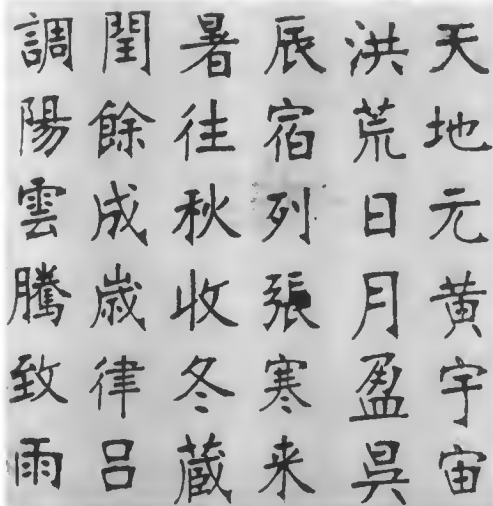 天地元黄宇宙
洪荒日月盈昃
辰宿列張寒来
暑往秋收冬蔵
閏餘成歳律吕
調陽雲騰致雨